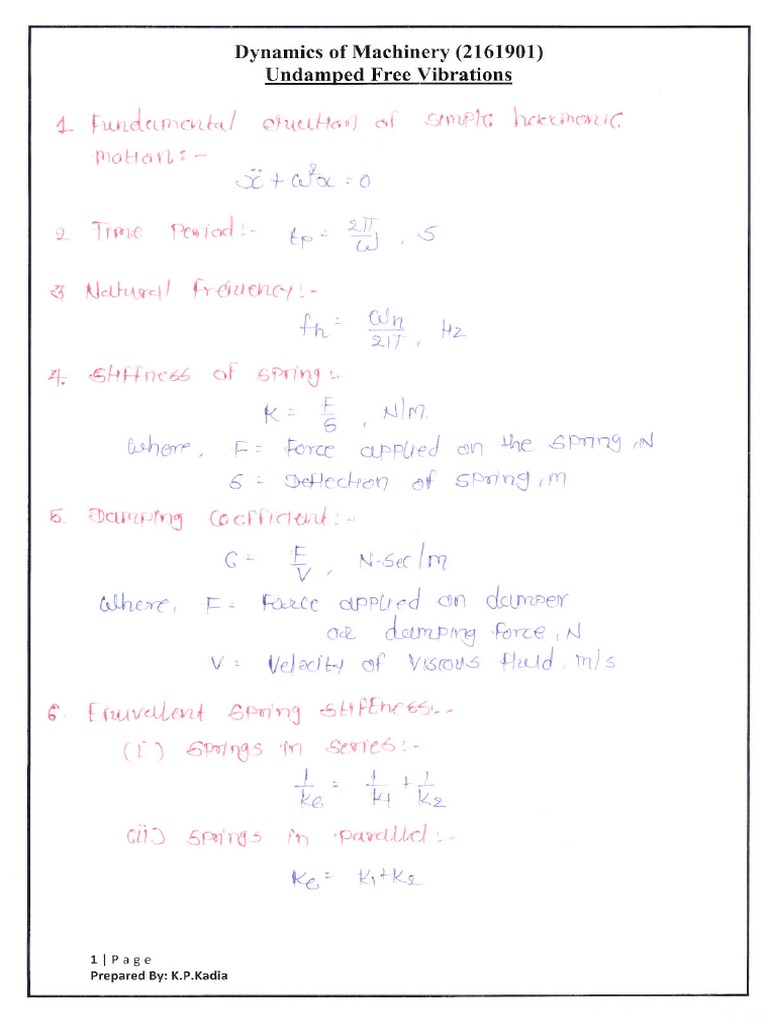 Dynamics of Machinery (2161901)
Undamped Free Vibrations
1 Fundamental equation of simple harmonic
motion:-
ẍ + ω²x = 0
2 Time Period:- tp = 2π/ω , S
3 Natural Frequency:-
fn = ωn/2π , Hz
4. Stiffness of spring:-
K = F/δ , N/m
Where, F = Force applied on the spring, N
δ = Deflection of spring, m
5. Damping Coefficient:-
C = F/V , N-sec/m
Where, F = Force applied on damper
or damping force, N
V = Velocity of viscous fluid, m/s
6. Equivallent spring stiffness:-
(i) springs in series:-
1/Ke = 1/K1 + 1/K2
(ii) springs in parallel:-
Ke = K1+K2
1 | Page
Prepared By: K.P.Kadia